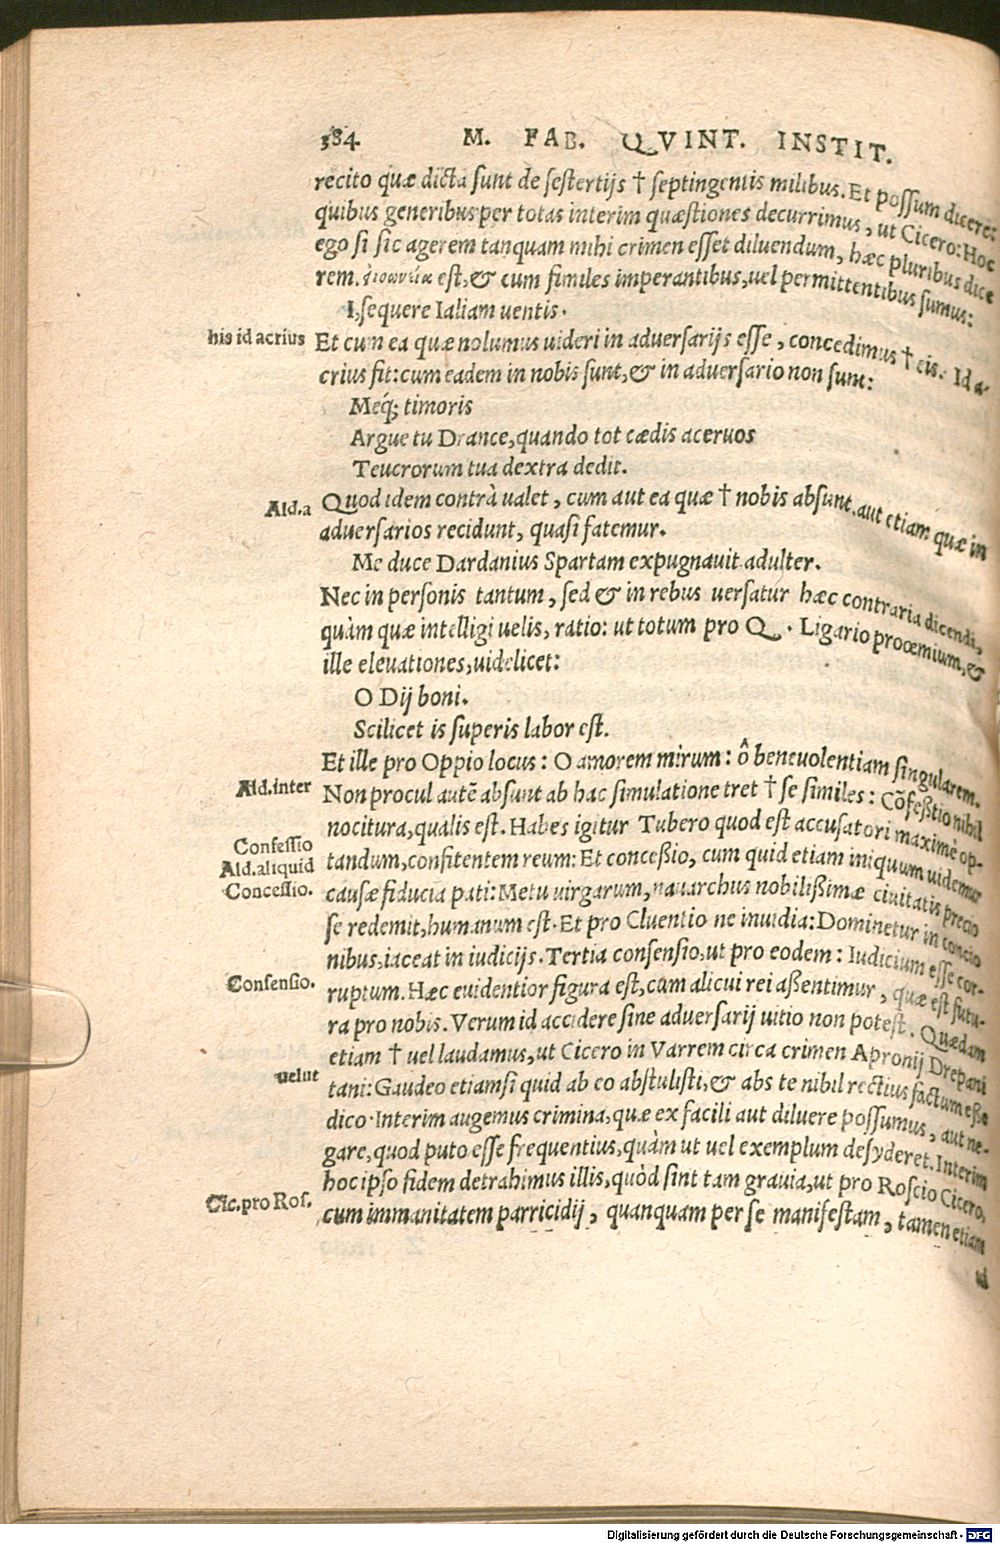 384 M. FAB. QVINT. INSTIT.
recito quæ dicta sunt de sestertijs † septingentis milibus. Et possum dicere:
quibus generibus per totas interim quæstiones decurrimus, ut Cicero: Hoc
ego si sic agerem tanquam mihi crimen esset diluendum, hæc pluribus dice
rem. εἰρωνεία est, & cum similes imperantibus, uel permittentibus sumus:
I, sequere Italiam uentis.
his id acrius
Et cum ea quæ nolumus uideri in aduersarijs esse, concedimus † eis. Id a-
crius fit: cum eadem in nobis sunt, & in aduersario non sunt:
Meq́; timoris
Argue tu Drance, quando tot cædis aceruos
Teucrorum tua dextra dedit.
Ald. a
Quod idem contrà ualet, cum aut ea quæ † nobis absunt, aut etiam quæ in
aduersarios recidunt, quasi fatemur.
Me duce Dardanius Spartam expugnauit adulter.
Nec in personis tantum, sed & in rebus uersatur hæc contraria dicendi,
quàm quæ intelligi uelis, ratio: ut totum pro Q. Ligario prooemium, &
ille eleuationes, uidelicet:
O Dij boni.
Scilicet is superis labor est.
Et ille pro Oppio locus: O amorem mirum: ô beneuolentiam singularem.
Ald. inter
Non procul autē absunt ab hac simulatione tret † se similes: Cōfeßtio nihil
nocitura, qualis est. Habes igitur Tubero quod est accusatori maximè op-
Confessio
Ald. aliquid
tandum, confitentem reum: Et conceßio, cum quid etiam iniquum uidemur
Concessio.
causæ fiducia pati: Metu uirgarum, nauarchus nobilißimæ ciuitatis precio
se redemit, humanum est. Et pro Cluentio ne inuidia: Dominetur in concio
nibus, iaceat in iudicijs. Tertia consensio, ut pro eodem: Iudicium esse cor-
Consensio.
ruptum. Hæc euidentior figura est, cum alicui rei aßentimur, quæ est futu-
ra pro nobis. Verum id accidere sine aduersarij uitio non potest. Quædam
etiam † uel laudamus, ut Cicero in Varrem circa crimen Apronij Drepani
uelut
tani: Gaudeo etiamsi quid ab eo abstulisti, & abs te nihil rectius factum eße
dico. Interim augemus crimina, quæ ex facili aut diluere possumus, aut ne-
gare, quod puto esse frequentius, quàm ut uel exemplum desyderet. Interim
hoc ipso fidem detrahimus illis, quòd sint tam grauia, ut pro Roscio Cicero,
Cic. pro Ros.
cum immanitatem parricidij, quanquam per se manifestam, tamen etiam
ui
Digitalisierung gefördert durch die Deutsche Forschungsgemeinschaft - DFG